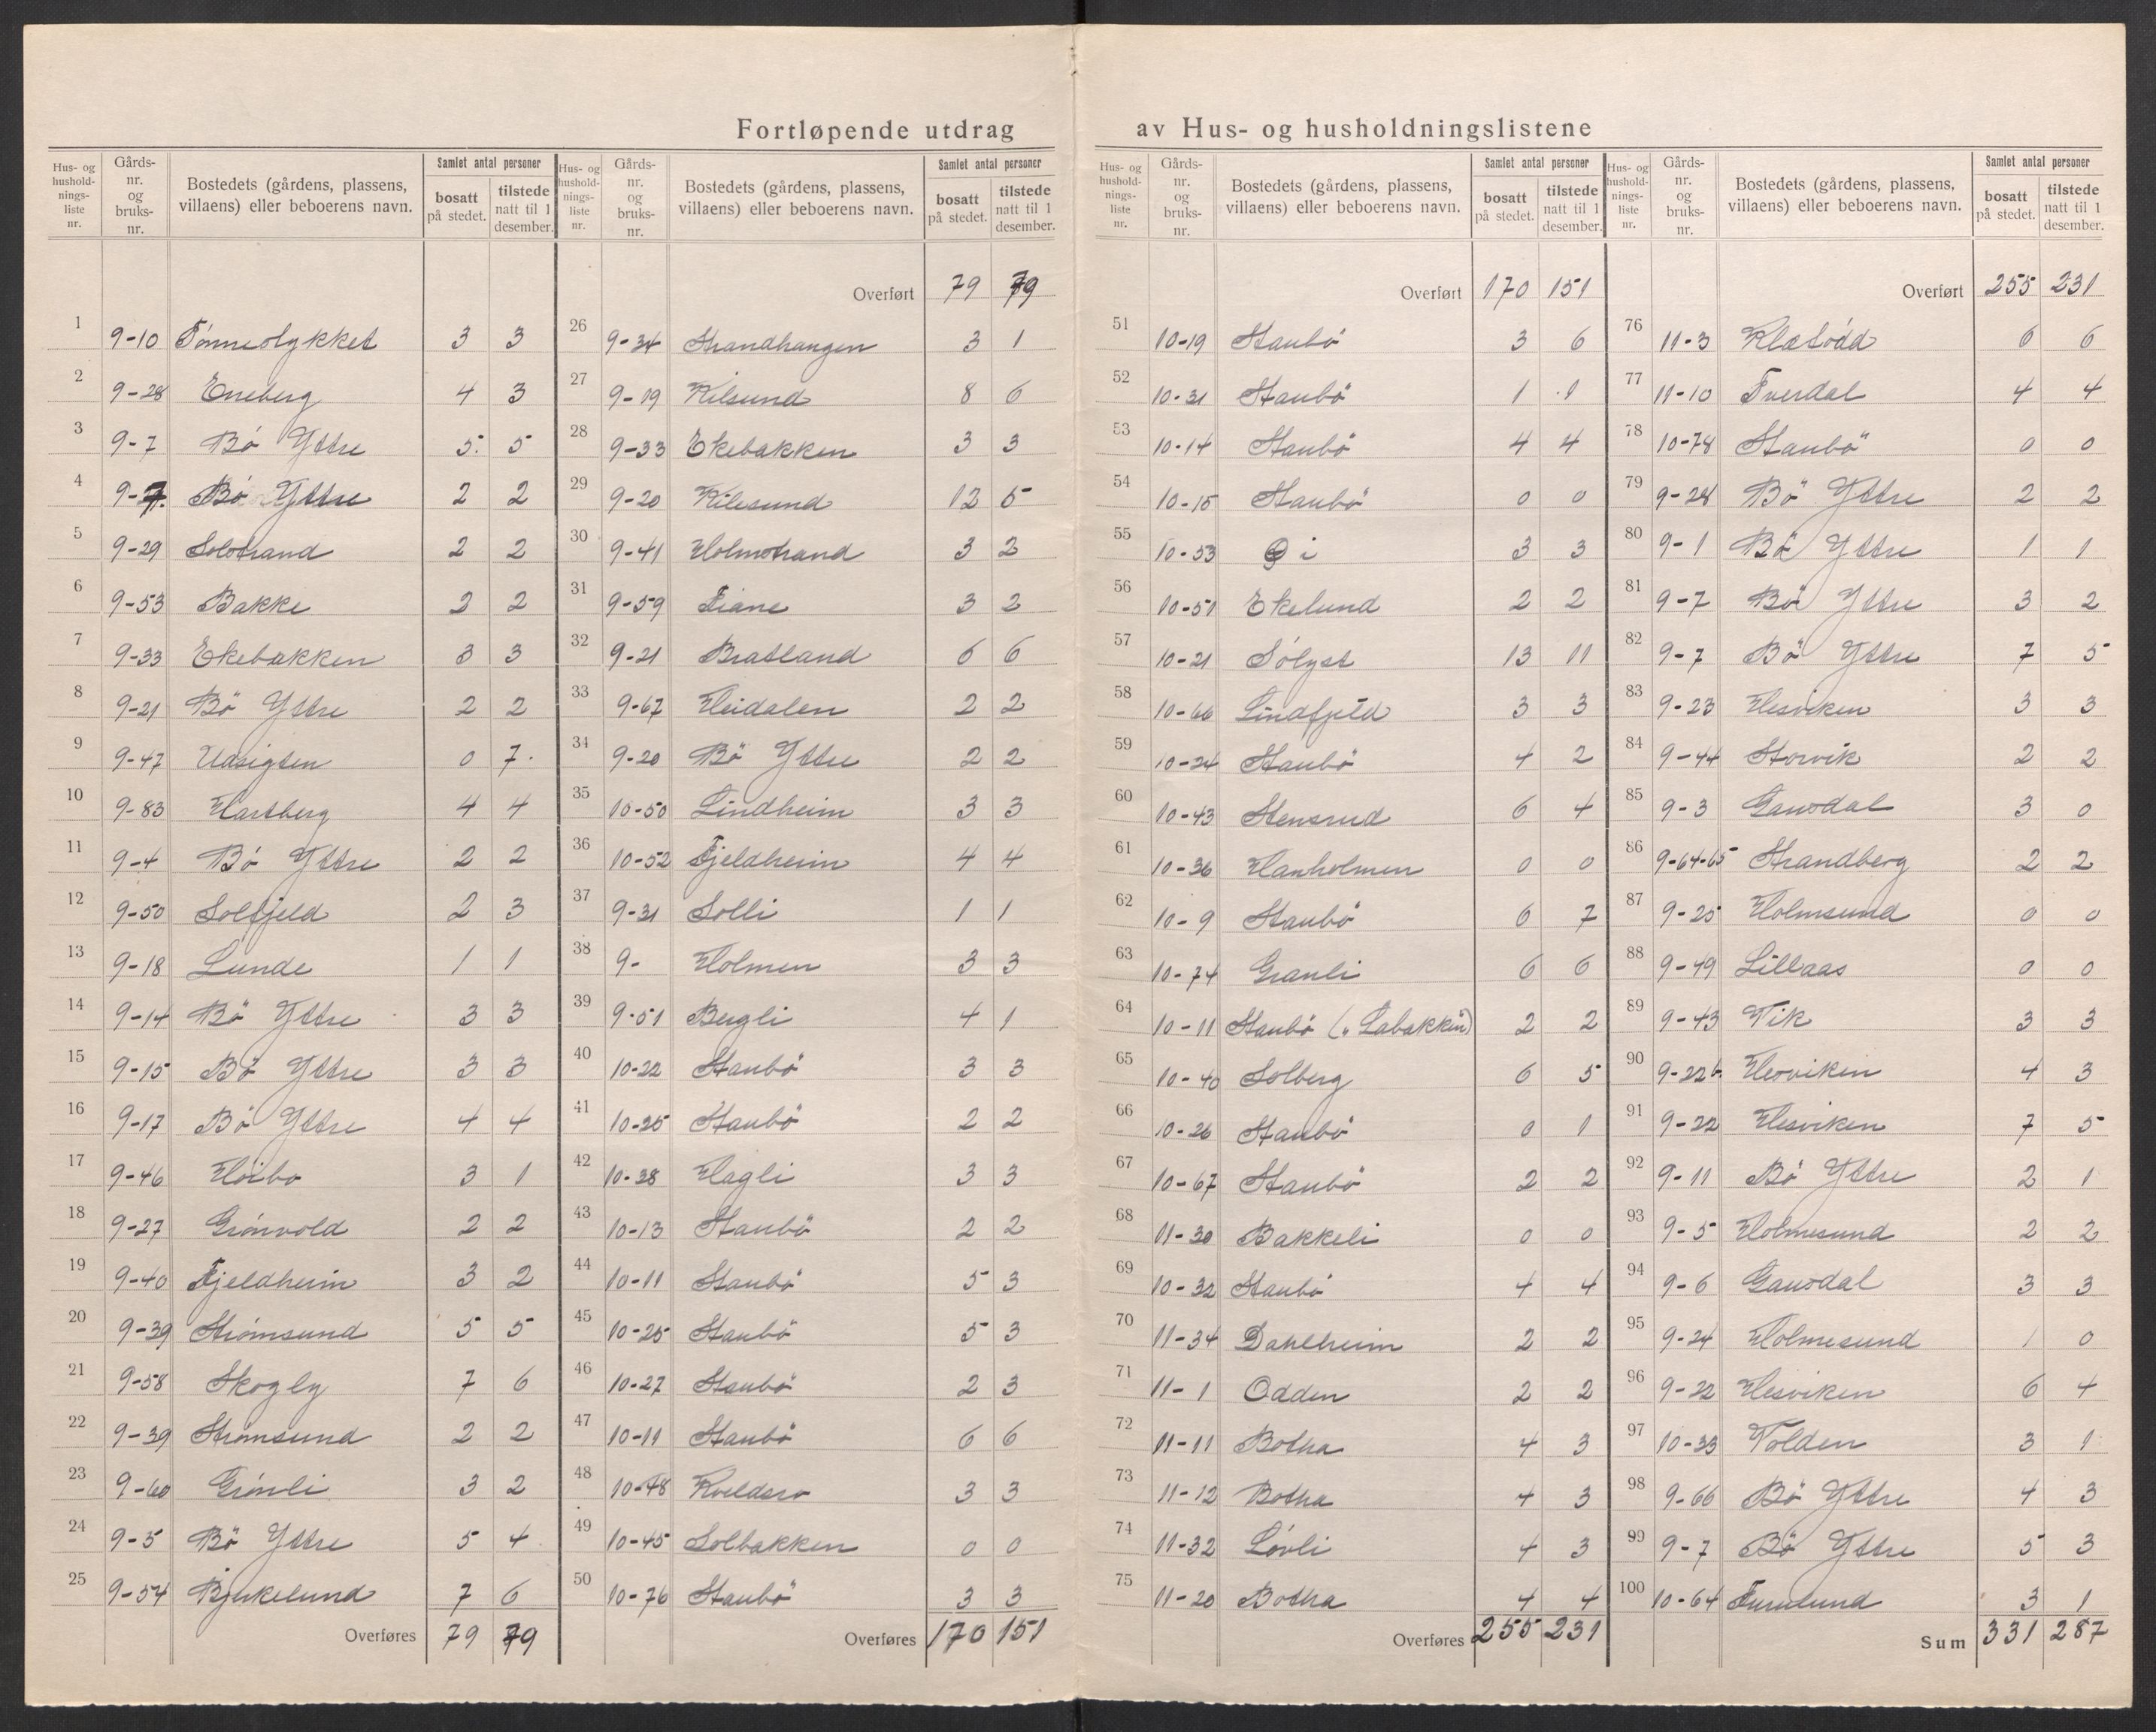 Fortløpende utdrag av Hus- og husholdningslistene
Hus- og husholdningsliste nr. | Gårds-nr. og bruks-nr. | Bostedets (gårdens, plassens, villaens) eller beboerens navn. | Samlet antal personer | bosatt på stedet. | tilstede natt til 1 desember.
1 9-10 Tønnestykket 3 3
2 9-28 Eneberg 4 3
3 9-7 Bö Yttre 5 5
4 9-7 Bö Yttre 2 2
5 9-29 Solstrand 2 2
6 9-53 Bakke 2 2
7 9-33 Ekebakken 3 3
8 9-21 Bö Yttre 2 2
9 9-47 Udsigten 0 7
10 9-83 Hartberg 4 4
11 9-4 Bö Yttre 2 2
12 9-50 Solfjeld 2 3
13 9-18 Lunde 1 1
14 9-14 Bö Yttre 3 3
15 9-15 Bö Yttre 3 3
16 9-17 Bö Yttre 4 4
17 9-46 Höibo 3 1
18 9-27 Grönvold 2 2
19 9-40 Fjeldheim 3 2
20 9-39 Strömsund 5 5
21 9-58 Skogly 7 6
22 9-39 Strömsund 2 2
23 9-60 Grönli 3 2
24 9-5 Bö Yttre 5 4
25 9-54 Bjerkelund 7 6
Overføres 79 79
Hus- og husholdningsliste nr. | Gårds-nr. og bruks-nr. | Bostedets (gårdens, plassens, villaens) eller beboerens navn. | Samlet antal personer | bosatt på stedet. | tilstede natt til 1 desember.
Overført 79 79
26 9-34 Strandhaugen 3 1
27 9-19 Kilsund 8 6
28 9-33 Ekebakken 3 3
29 9-20 Kilesund 12 5
30 9-41 Holmstrand 3 2
31 9-59 Tiane 3 2
32 9-21 Bratland 6 6
33 9-67 Heidalen 2 2
34 9-20 Bö Yttre 2 2
35 10-50 Lindheim 3 3
36 10-52 Fjeldheim 4 4
37 9-31 Solli 1 1
38 9- Holmen 3 3
39 9-51 Bergli 4 1
40 10-22 Staubö 3 3
41 10-25 Staubö 2 2
42 10-38 Hagli 3 3
43 10-13 Staubö 2 2
44 10-11 Staubö 5 3
45 10-25 Staubö 5 3
46 10-27 Staubö 2 3
47 10-11 Staubö 6 6
48 10-48 Kveldsro 3 3
49 10-45 Solbakken 0 0
50 10-76 Staubö 3 3
Overføres 170 151
Hus- og husholdningsliste nr. | Gårds-nr. og bruks-nr. | Bostedets (gårdens, plassens, villaens) eller beboerens navn. | Samlet antal personer | bosatt på stedet. | tilstede natt til 1 desember.
Overført 170 151
51 10-19 Staubö 3 6
52 10-31 Staubö 1 1
53 10-14 Staubö 4 4
54 10-15 Staubö 0 0
55 10-53 Öi 3 3
56 10-51 Ekelund 2 2
57 10-21 Sölyst 13 11
58 10-66 Lindfjeld 3 3
59 10-24 Staubö 4 2
60 10-43 Stensrud 6 4
61 10-36 Hanholmen 0 0
62 10-9 Staubö 6 7
63 10-74 Granli 6 6
64 10-11 Staubö („Labakken") 2 2
65 10-40 Solberg 6 5
66 10-26 Staubö 0 1
67 10-67 Staubö 2 2
68 11-30 Bakkeli 0 0
69 10-32 Staubö 4 4
70 11-34 Dahlheim 2 2
71 11-1 Odden 2 2
72 11-11 Botha 4 3
73 11-12 Botha 4 3
74 11-32 Lövli 4 3
75 11-20 Botha 4 4
Overføres 255 231
Hus- og husholdningsliste nr. | Gårds-nr. og bruks-nr. | Bostedets (gårdens, plassens, villaens) eller beboerens navn. | Samlet antal personer | bosatt på stedet. | tilstede natt til 1 desember.
Overført 255 231
76 11-3 Klatödd 6 6
77 11-10 Tverdal 4 4
78 10-78 Staubö 0 0
79 9-28 Bö Yttre 2 2
80 9-1 Bö Yttre 1 1
81 9-7 Bö Yttre 3 2
82 9-7 Bö Yttre 7 5
83 9-23 Hesviken 3 3
84 9-44 Storvik 2 2
85 9-3 Gausdal 3 0
86 9-64-65 Strandberg 2 2
87 9-25 Holmsund 0 0
88 9-49 Lillaas 0 0
89 9-43 Vik 3 3
90 9-22b Hesviken 4 3
91 9-22 Hesviken 7 5
92 9-11 Bö Yttre 2 1
93 9-5 Holmesund 2 2
94 9-6 Gausdal 3 3
95 9-24 Holmesund 1 0
96 9-22 Hesviken 6 4
97 10-33 Volden 3 1
98 9-66 Bö Yttre 4 3
99 9-7 Bö Yttre 5 3
100 10-64 Furulund 3 1
Sum 331 287